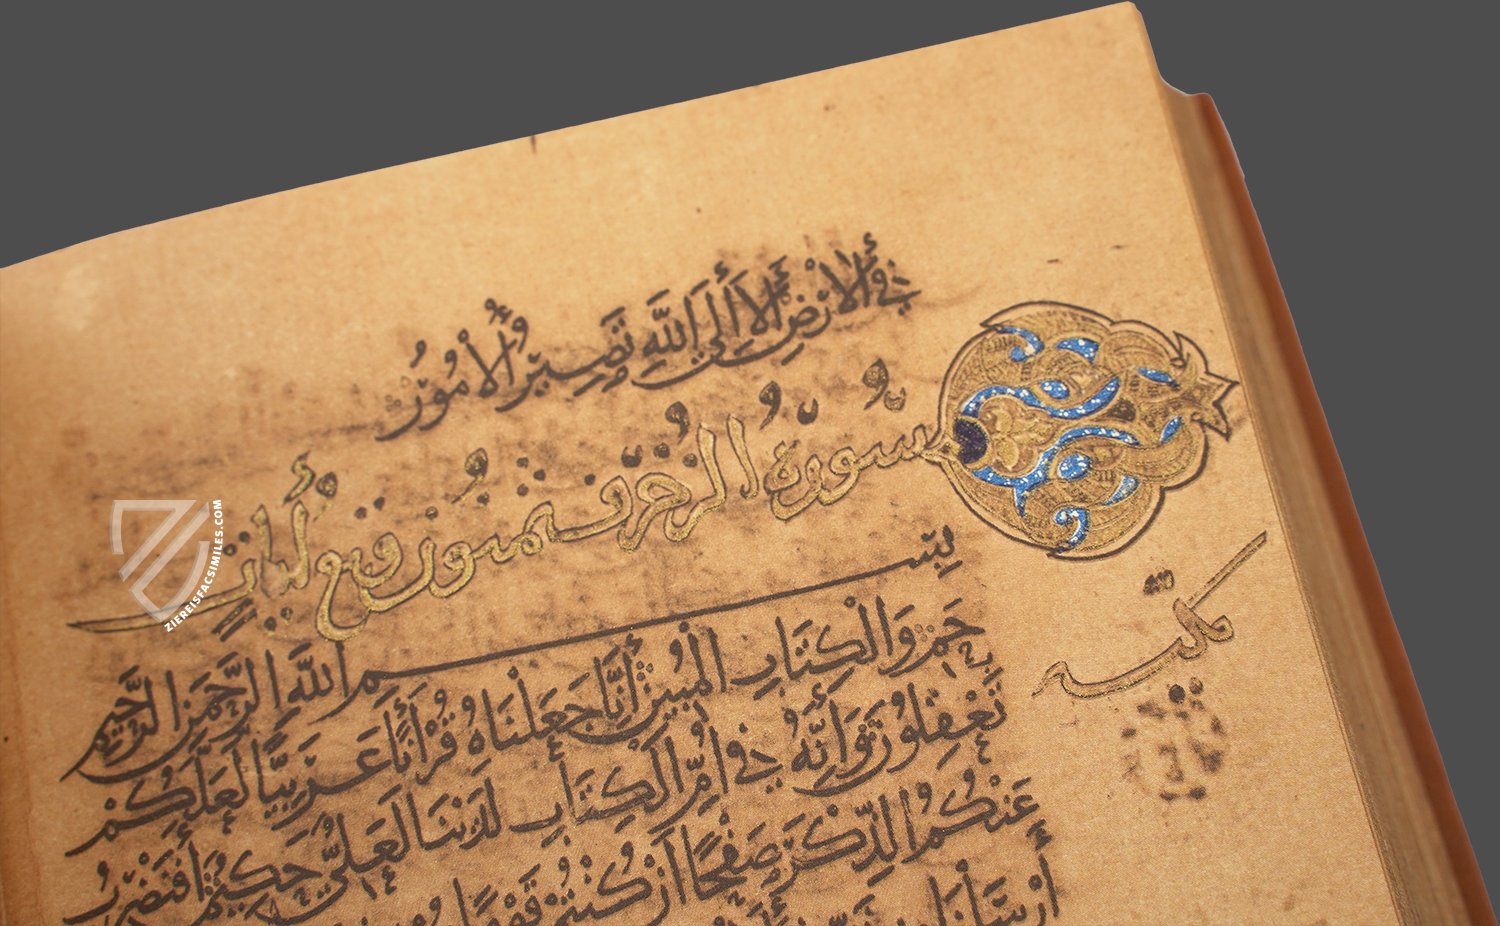 فِي الْأَرْضِ أَلَا إِلَى اللَّهِ تَصِيرُ الْأُمُورُ
سُورَةُ الزُّخْرُفِ ثَمَنُونَ وَتِسْعُ أٰيَاتٍ
بِسْمِ اللَّهِ الرَّحْمَنِ الرَّحِيمِ
مكيّة
حم وَالْكِتَابِ الْمُبِينِ إِنَّا جَعَلْنَاهُ قُرْأَنًا عَرَبِيًّا لَعَلَّكُمْ
تَعْقِلُونَ وَإِنَّهُ فِي أُمِّ الْكِتَابِ لَدَيْنَا لَعَلِيٌّ حَكِيمٌ أَفَنَضْرِبُ
عَنْكُمُ الذِّكْرَ صَفْحًا أَنْ كُنْتُمْ قَوْمًا
أَرْسَلْنَا
ZIEREISFACSIMILES.COM